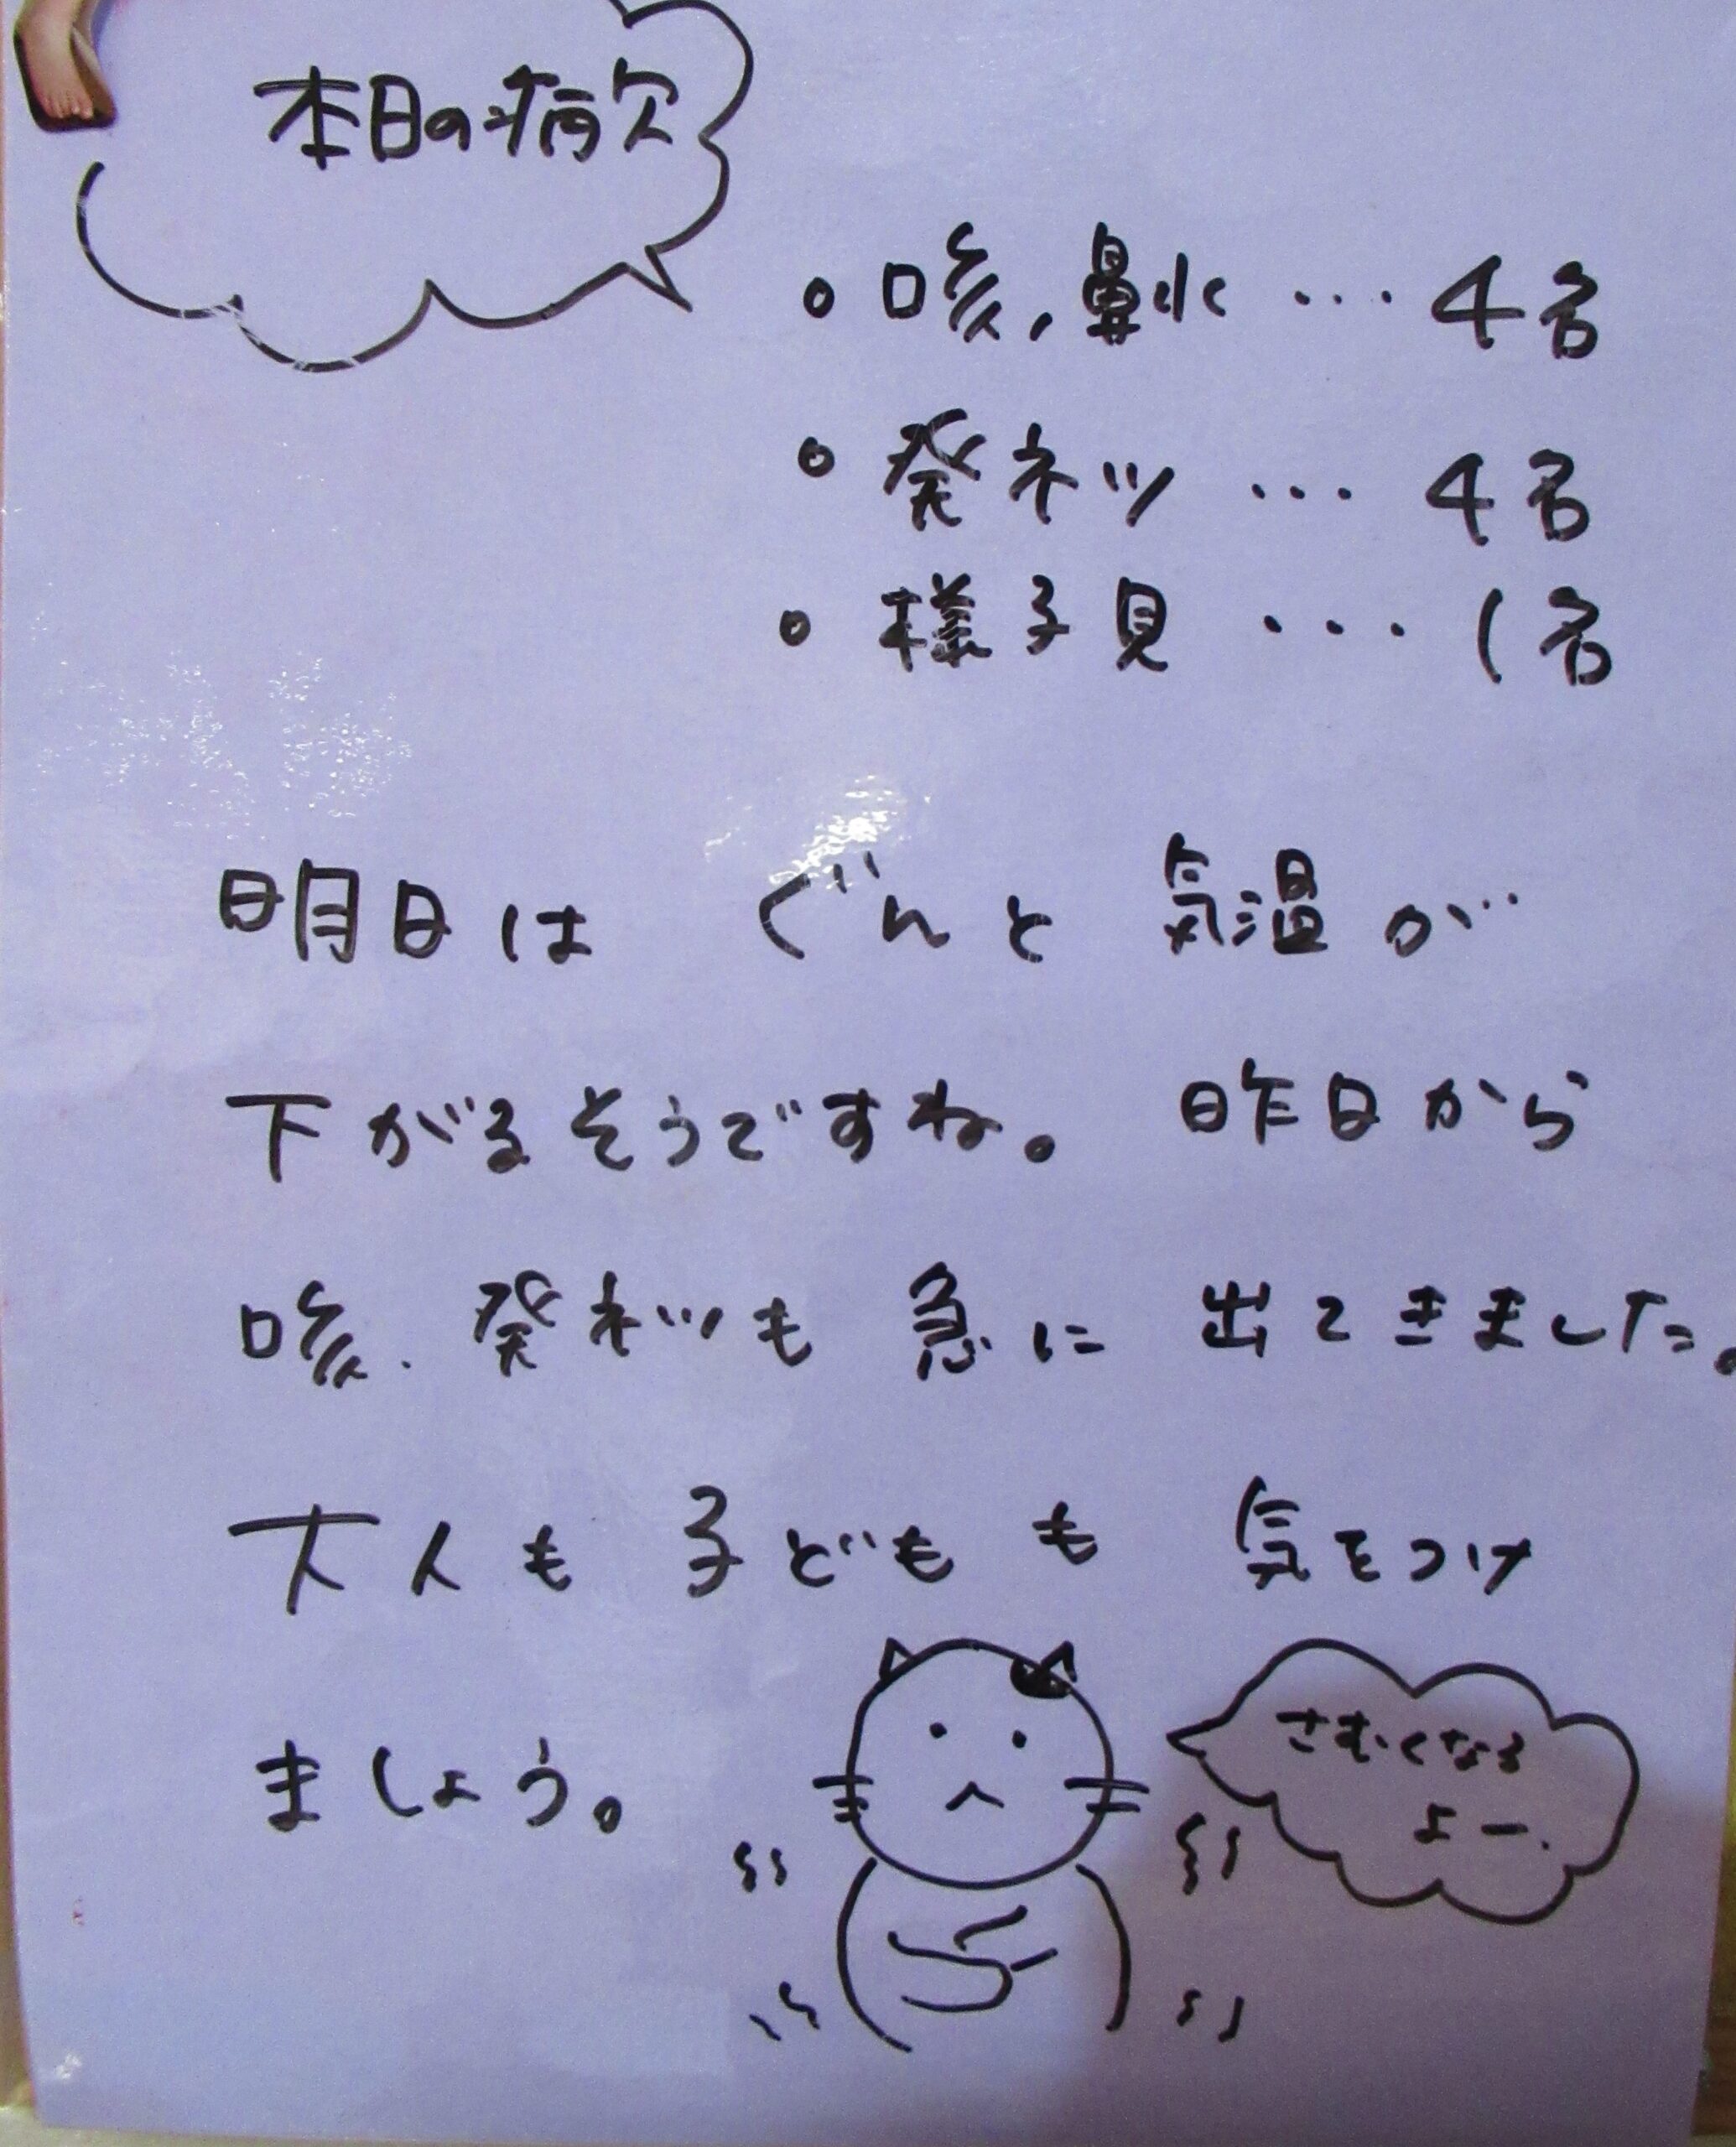 本日の病欠
。咳,鼻水…4名
。発ネツ…4名
。様子見…1名
明日は ぐんと 気温が
下がるそうですね。 昨日から
咳.発ネツも 急に 出てきました。
大人も 子どもも 気をつけ
ましょう。
さむくなる
よー.